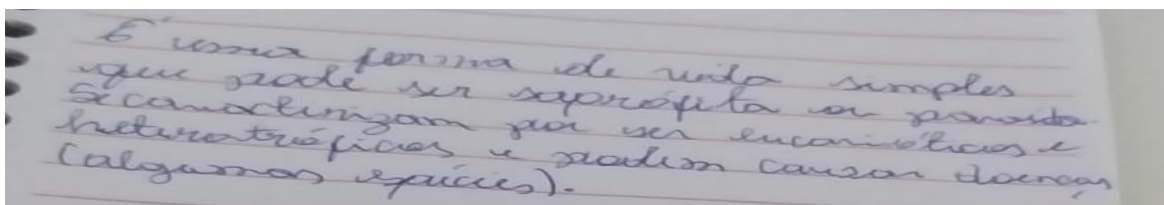 É uma forma de vida simples
que pode ser saprófita ou parasita
Se caracterizam por ser eucarióticos e
heterotróficos e podem causar doenças
(algumas espécies).